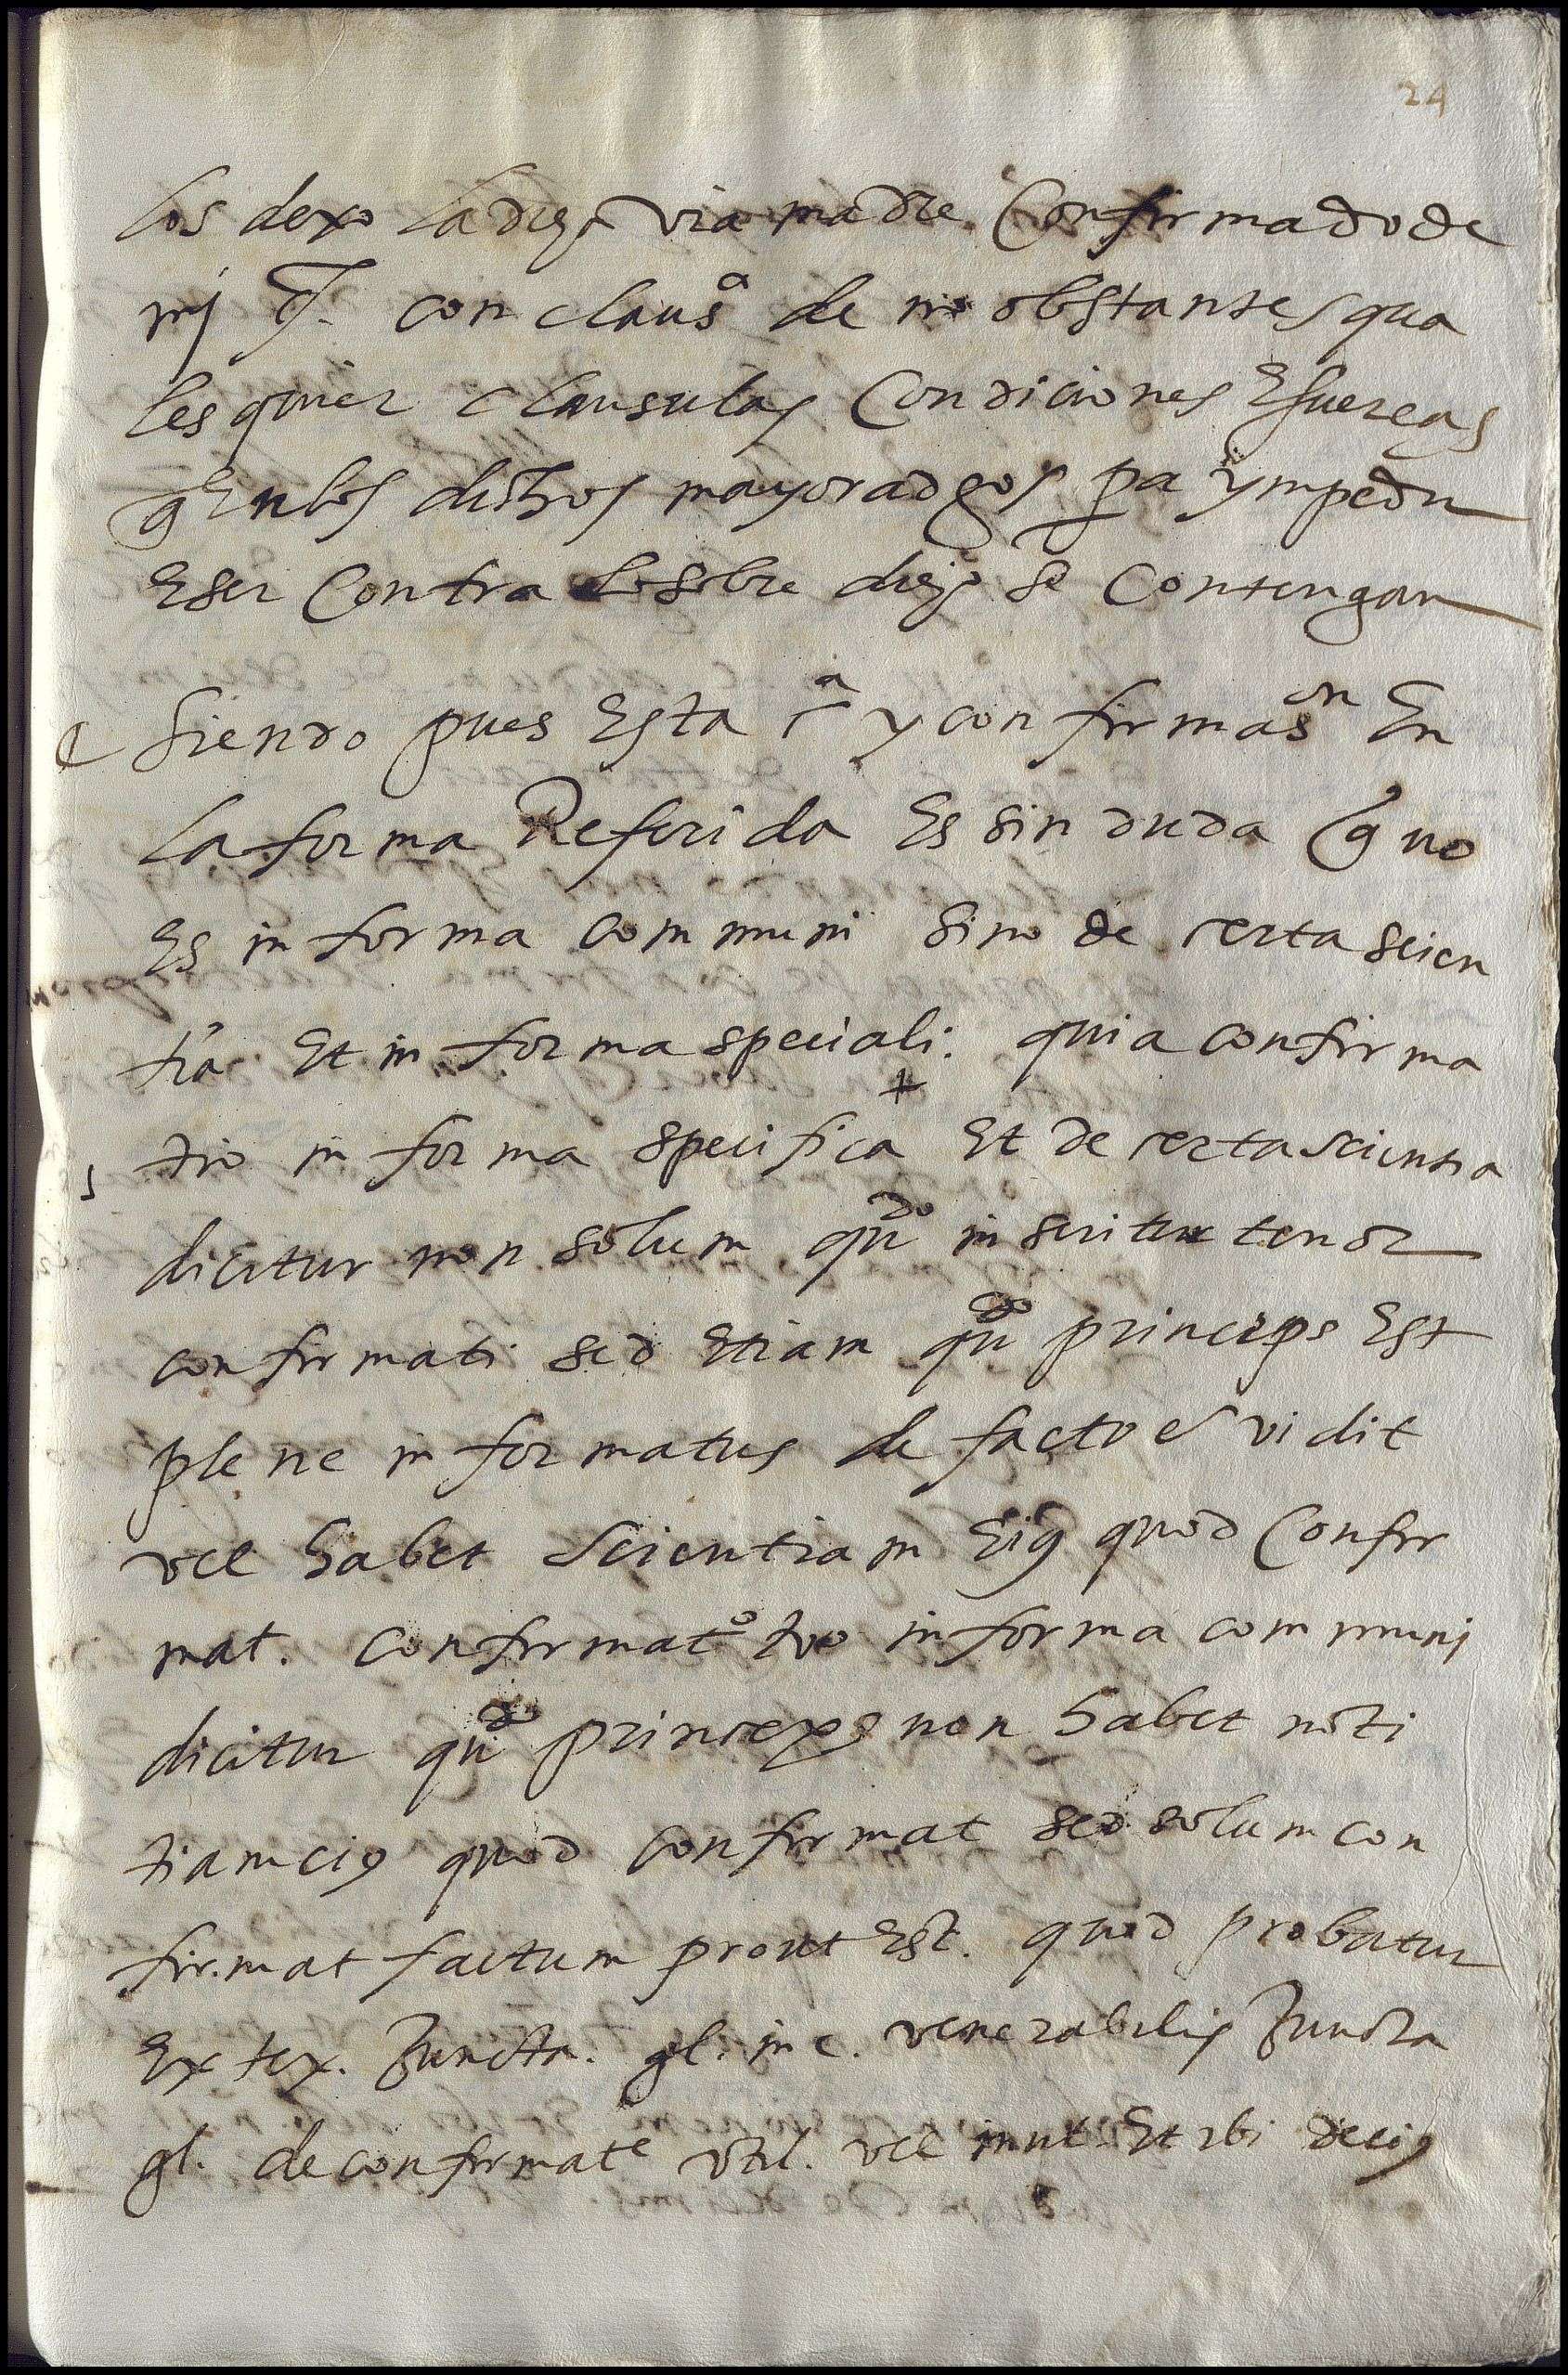 24
los dexo la dicha via madre Confirmado de
mj con claus^a de no obstantes qua
lesquier clausulas Condiciones E fuerças
q En los dichos mayoradgos pa ympedir
E ser Contra lo sobre dicho se Contengan
Siendo pues Esta r^a y confirmas^on En
la forma Referida Es sin duda q no
Es in forma communi Sino de certa scien
tia Et in forma speciali. quia confirma
tio in forma specifica + Et de certa scientia
dicitur non solum qũ^do inseritur tenor
confirmati sed Etiam qũ^do princeps Est
plene informatus de facto & vidit
vel habet scientiam Eiꝯ quod Confir
mat. confirmat^o v^o in forma communj
dicitur qũ^do princeps non habet noti
tiam eiꝯ quod confirmat sed solum con
firmat factum prout Est. quod probatur
Ex tex. Juncta. gl. in c. venerabilis Juncta
gl. de confirmat^e vtil. vel inut. Et ibi deciꝯ